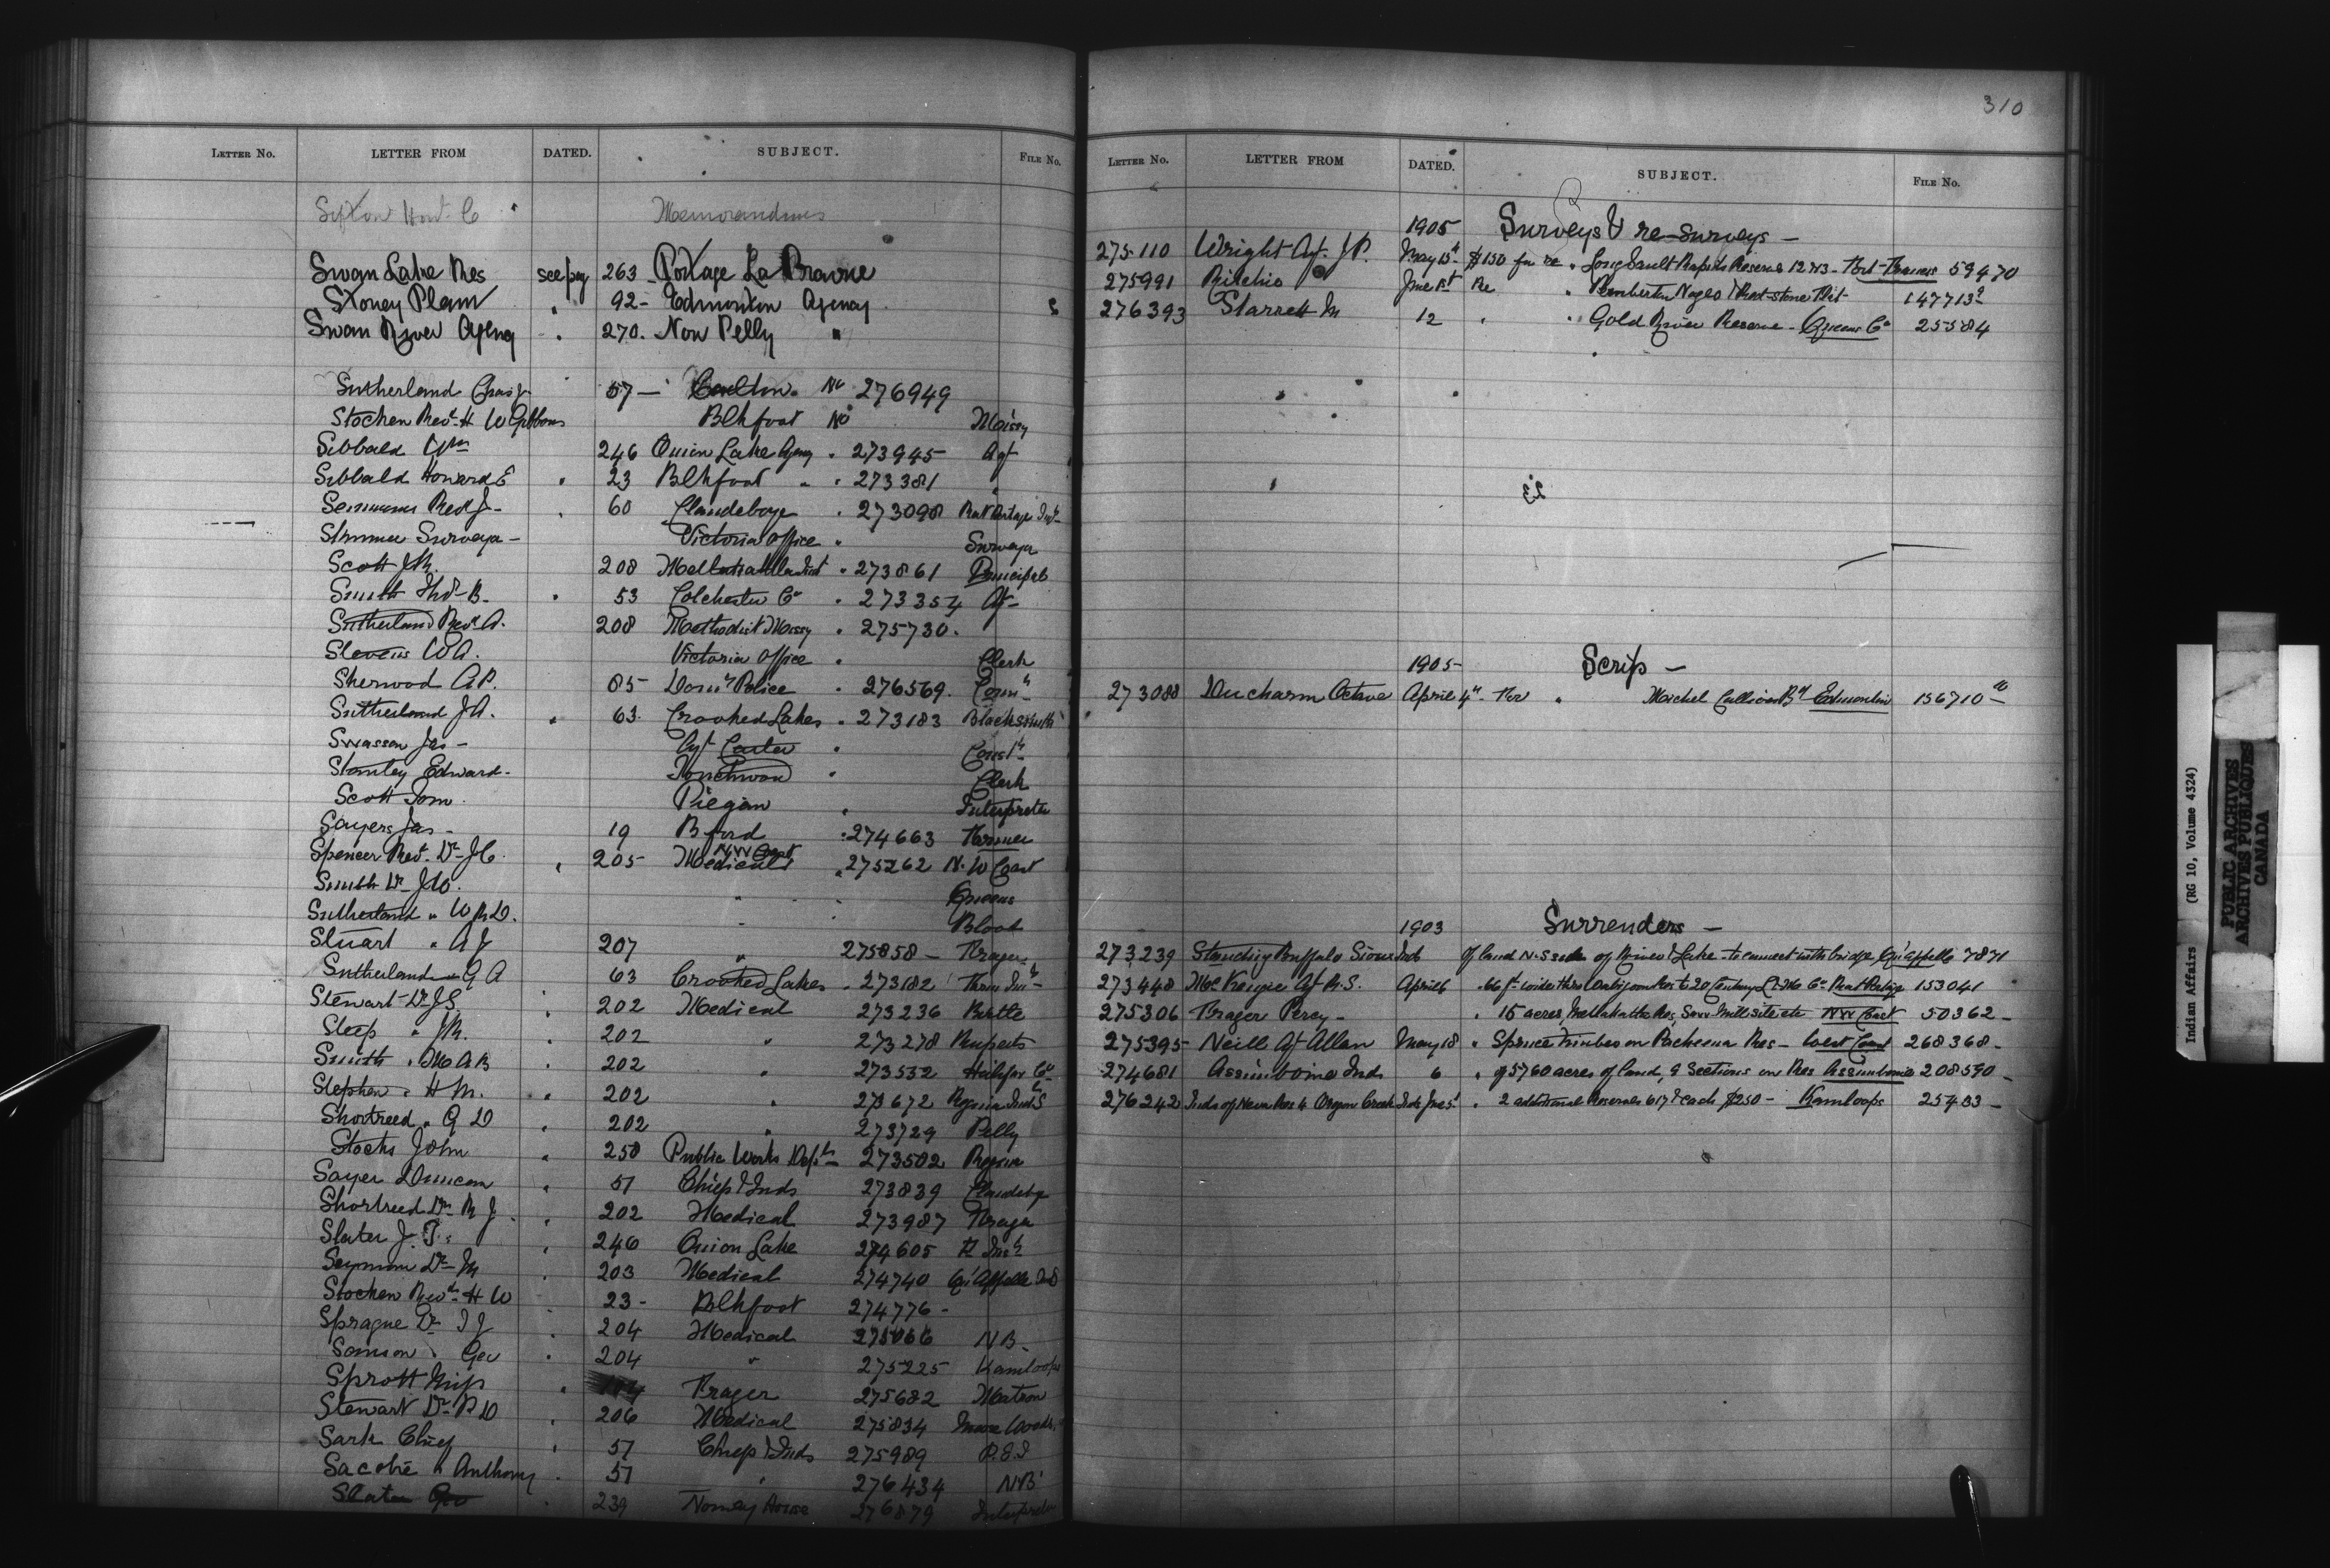 LETTER NO. LETTER FROM DATED. SUBJECT. FILE NO.
Memorandums
Swan Lake Res see pag 263 Portage La Prairie
Stoney Plain " 92 - Edmonton Agency
Swan River Agency " 270. Now Pelly "
Sutherland Chas 57 - Carlton No 276949
Stocken Revd H W Gibbons Blkfoot No Missy
Sibbald Wm 246 Onion Lake Agency " 273945 Agt
Sibbald Howard E " 23 Blkfoot " " 273381 "
Semmens Revd J - " 60 Clandeboye " 273098 Rat Portage Ind
Victoria office "
Scott J R. 208 " 273861 Principal
Smith Thos B. " 53 Colchester Co " 273354 Agt -
Sutherland Revd A. 208 Methodist Missy " 275730.
Stevens W A. Victoria office " Clerk
Sherwood A P. 85 Domn Police " 276569. Comr
Sutherland J A. " 63. Crooked Lakes " 273183 Blacksmith
Swasson Jas - Agt Carter " Const
Stanley Edward - Touchwood " Clerk
Scott Tom. Piegan " Interpreter
Sayers Jas - 19 B ford " 274663 Farmer
Spencer Revd Dr J C. " 205 Medical NW Coast " 275262 N. W Coast
Smith Dr J W. " " Queens
Sutherland " W R D. " Blood
Stuart " A J 207 " 275858 - Fraser
Sutherland " G A 63 Crooked Lakes " 273182
Stewart Dr J S. " 202 Medical 273236 Birtle
Sleep " J R. " 202 " 273278 Ruperts
Smith " M A B " 202 " 273532 Halifax Co
Stephen " H M. " 202 " 273672 Regina Inds
Shortreed " G D " 202 " 273729 Pelly
Stocks John " 258 Public Works Dept 273502 Regina
Sayer Duncan " 51 Chiefs & Inds 273839 Clandeboye
Shortreed Dr R J " 202 Medical 273987 Fraser
Slater J. T. " 246 Onion Lake 274605
Seymour Dr M " 203 Medical 274740 Qu'Appelle Ind
Stocken Revd H W 23 - Blkfoot 274776 -
Sprague Dr T J " 204 Medical 275066 N B.
Samson " Geo " 204 " 275225 Kamloops
Sprott Miss " Fraser 275682 Matron
Stewart Dr P D " 206 Medical 275834 Moose Woods.
Sark Chief " 51 Chiefs & Inds 275989 P. E I
Sacobie " Anthony " 51 " 276434 N B
Slater Geo " 239 Norway House 276879 Interpreter
310
LETTER NO. LETTER FROM DATED. SUBJECT. FILE NO.
1905 Surveys & re-surveys -
275110 Wright Agt. J P. May 15th $150 for re " Long Sault Rapids Reserve 12 & 13 - Fort Frances 59470
275991 Ritchie June 1st Re "
276393 Starrett M 12 " " Gold River Reserve - Queens Co 25584
1905 - Scrip -
273088 Ducharm Octave April 4th For " Michel Callihoo Bd Edmonton 156710
1903 Surrenders -
273239 Standing Buffalo Sioux Inds Of land N. S side of River & Lake - to connect with bridge, Qu'Appelle 7871
273448 McKenzie Agt R. S. April 6 " 66 ft wide thro Wabigoon Res to 20 Century Co Rat Portage 153041
275306 Fraser Percy - " 15 acres, Metlakatla Res, Saw-Mill site etc NW Coast 50362 -
275395 Neill Agt Allan May 18 " Spruce timber on Pacheena Res - West Coast 268368 -
274681 Assiniboine Inds 6 " of 5760 acres of land, 9 Sections on Res Assiniboine 208590 -
276242 Inds of Neva Res & Oregon Creek Inds June 5 " 2 additional Reserves each $250 - Kamloops 25483 -
Indian Affairs (RG 10, Volume 4324)
PUBLIC ARCHIVES
ARCHIVES PUBLIQUES
CANADA